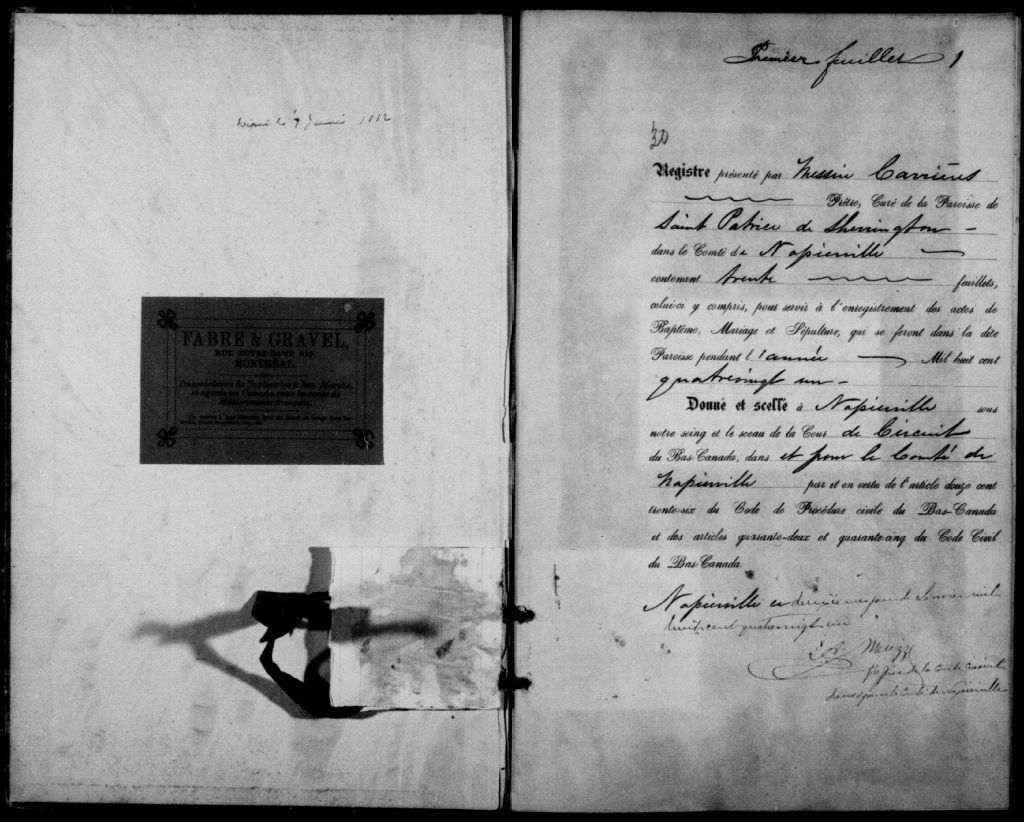 Déposé le 7 Janvier 1882
FABRE & GRAVEL,
RUE NOTRE-DAME 219
MONTRÉAL.
Importateurs de Tapisseries à bon Marché,
et agents au Canada pour la vente de
Premier feuillet 1
30
Registre présenté par Messire Carrières
Prêtre, Curé de la Paroisse de
Saint Patrice de Sherrington -
dans le Comté de Napierville
contenant trente feuillets,
celui-ci y compris, pour servir à l'enregistrement des actes de
Baptême, Mariage et Sépulture, qui se feront dans la dite
Paroisse pendant l'année Mil huit cent
quatrevingt un -
Donné et scellé à Napierville sous
notre seing et le sceau de la Cour de Circuit
du Bas-Canada, dans et pour le Comté de
Napierville par et en vertu de l'article douze cent
trente-six du Code de Procédure civile du Bas-Canada
et des articles quarante-deux et quarante-cinq du Code Civil
du Bas-Canada.
Napierville ce deuxième jour de Janvier mil
huit cent quatrevingt un
de la Cour de Circuit
dans et pour le Comté de Napierville